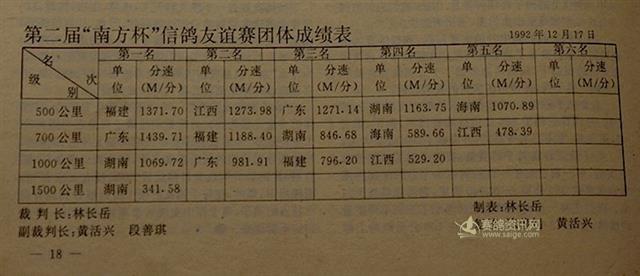 第二届“南方杯”信鸽友谊赛团体成绩表
1992年12月17日
名次 级别 第一名 第二名 第三名 第四名 第五名 第六名
单位 分速(M/分) 单位 分速(M/分) 单位 分速(M/分) 单位 分速(M/分) 单位 分速(M/分) 单位 分速(M/分)
500公里 福建 1371.70 江西 1273.98 广东 1271.14 湖南 1163.75 海南 1070.89
700公里 广东 1439.71 福建 1188.40 湖南 846.68 海南 589.66 江西 478.39
1000公里 湖南 1069.72 广东 981.91 福建 796.20 江西 529.20
1500公里 湖南 341.58
裁判长:林长岳 制表:林长岳
副裁判长:黄活兴 段善琪 黄活兴
赛鸽资讯网
www.saige.com
— 18 —